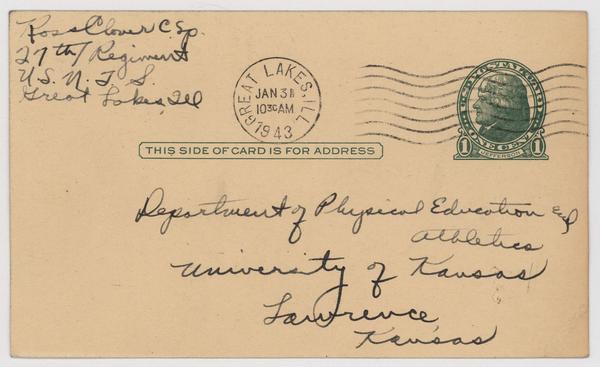 Ross Clover C Sp.
27th/Regiment
U.S.N.T.S.
Great Lakes, Ill
GREAT LAKES, ILL.
JAN 31
1030AM
1943
U.S. POSTAL CARD
1 ONE CENT 1
JEFFERSON
THIS SIDE OF CARD IS FOR ADDRESS
Department of Physical Education and
Athletics
University of Kansas
Lawrence
Kansas